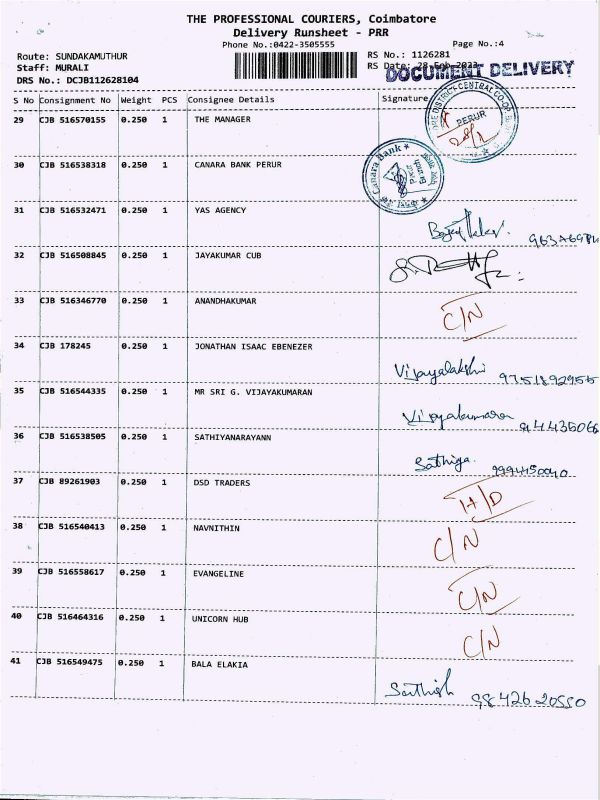 THE PROFESSIONAL COURIERS, Coimbatore
Delivery Runsheet - PRR
Phone No.:0422-3505555 Page No.:4
Route: SUNDAKAMUTHUR RS No.: 1126281
Staff: MURALI RS Date: 28-Feb-2023
DOCUMENT DELIVERY
DRS No.: DCJB112628104
S No Consignment No Weight PCS Consignee Details Signature
29 CJB 516570155 0.250 1 THE MANAGER
DISTRICT CENTRAL CO-OP
PERUR
30 CJB 516538318 0.250 1 CANARA BANK PERUR
Canara Bank
31 CJB 516532471 0.250 1 YAS AGENCY
32 CJB 516508845 0.250 1 JAYAKUMAR CUB
33 CJB 516346770 0.250 1 ANANDHAKUMAR
C/N
34 CJB 178245 0.250 1 JONATHAN ISAAC EBENEZER
Vijayalakshi 9751892955
35 CJB 516544335 0.250 1 MR SRI G. VIJAYAKUMARAN
Vijayakumaran
36 CJB 516538505 0.250 1 SATHIYANARAYANN
Sathiya. 9994150040
37 CJB 89261903 0.250 1 DSD TRADERS
H/D
38 CJB 516540413 0.250 1 NAVNITHIN
C/N
39 CJB 516558617 0.250 1 EVANGELINE
C/N
40 CJB 516464316 0.250 1 UNICORN HUB
C/N
41 CJB 516549475 0.250 1 BALA ELAKIA
Sathish 98426 20550